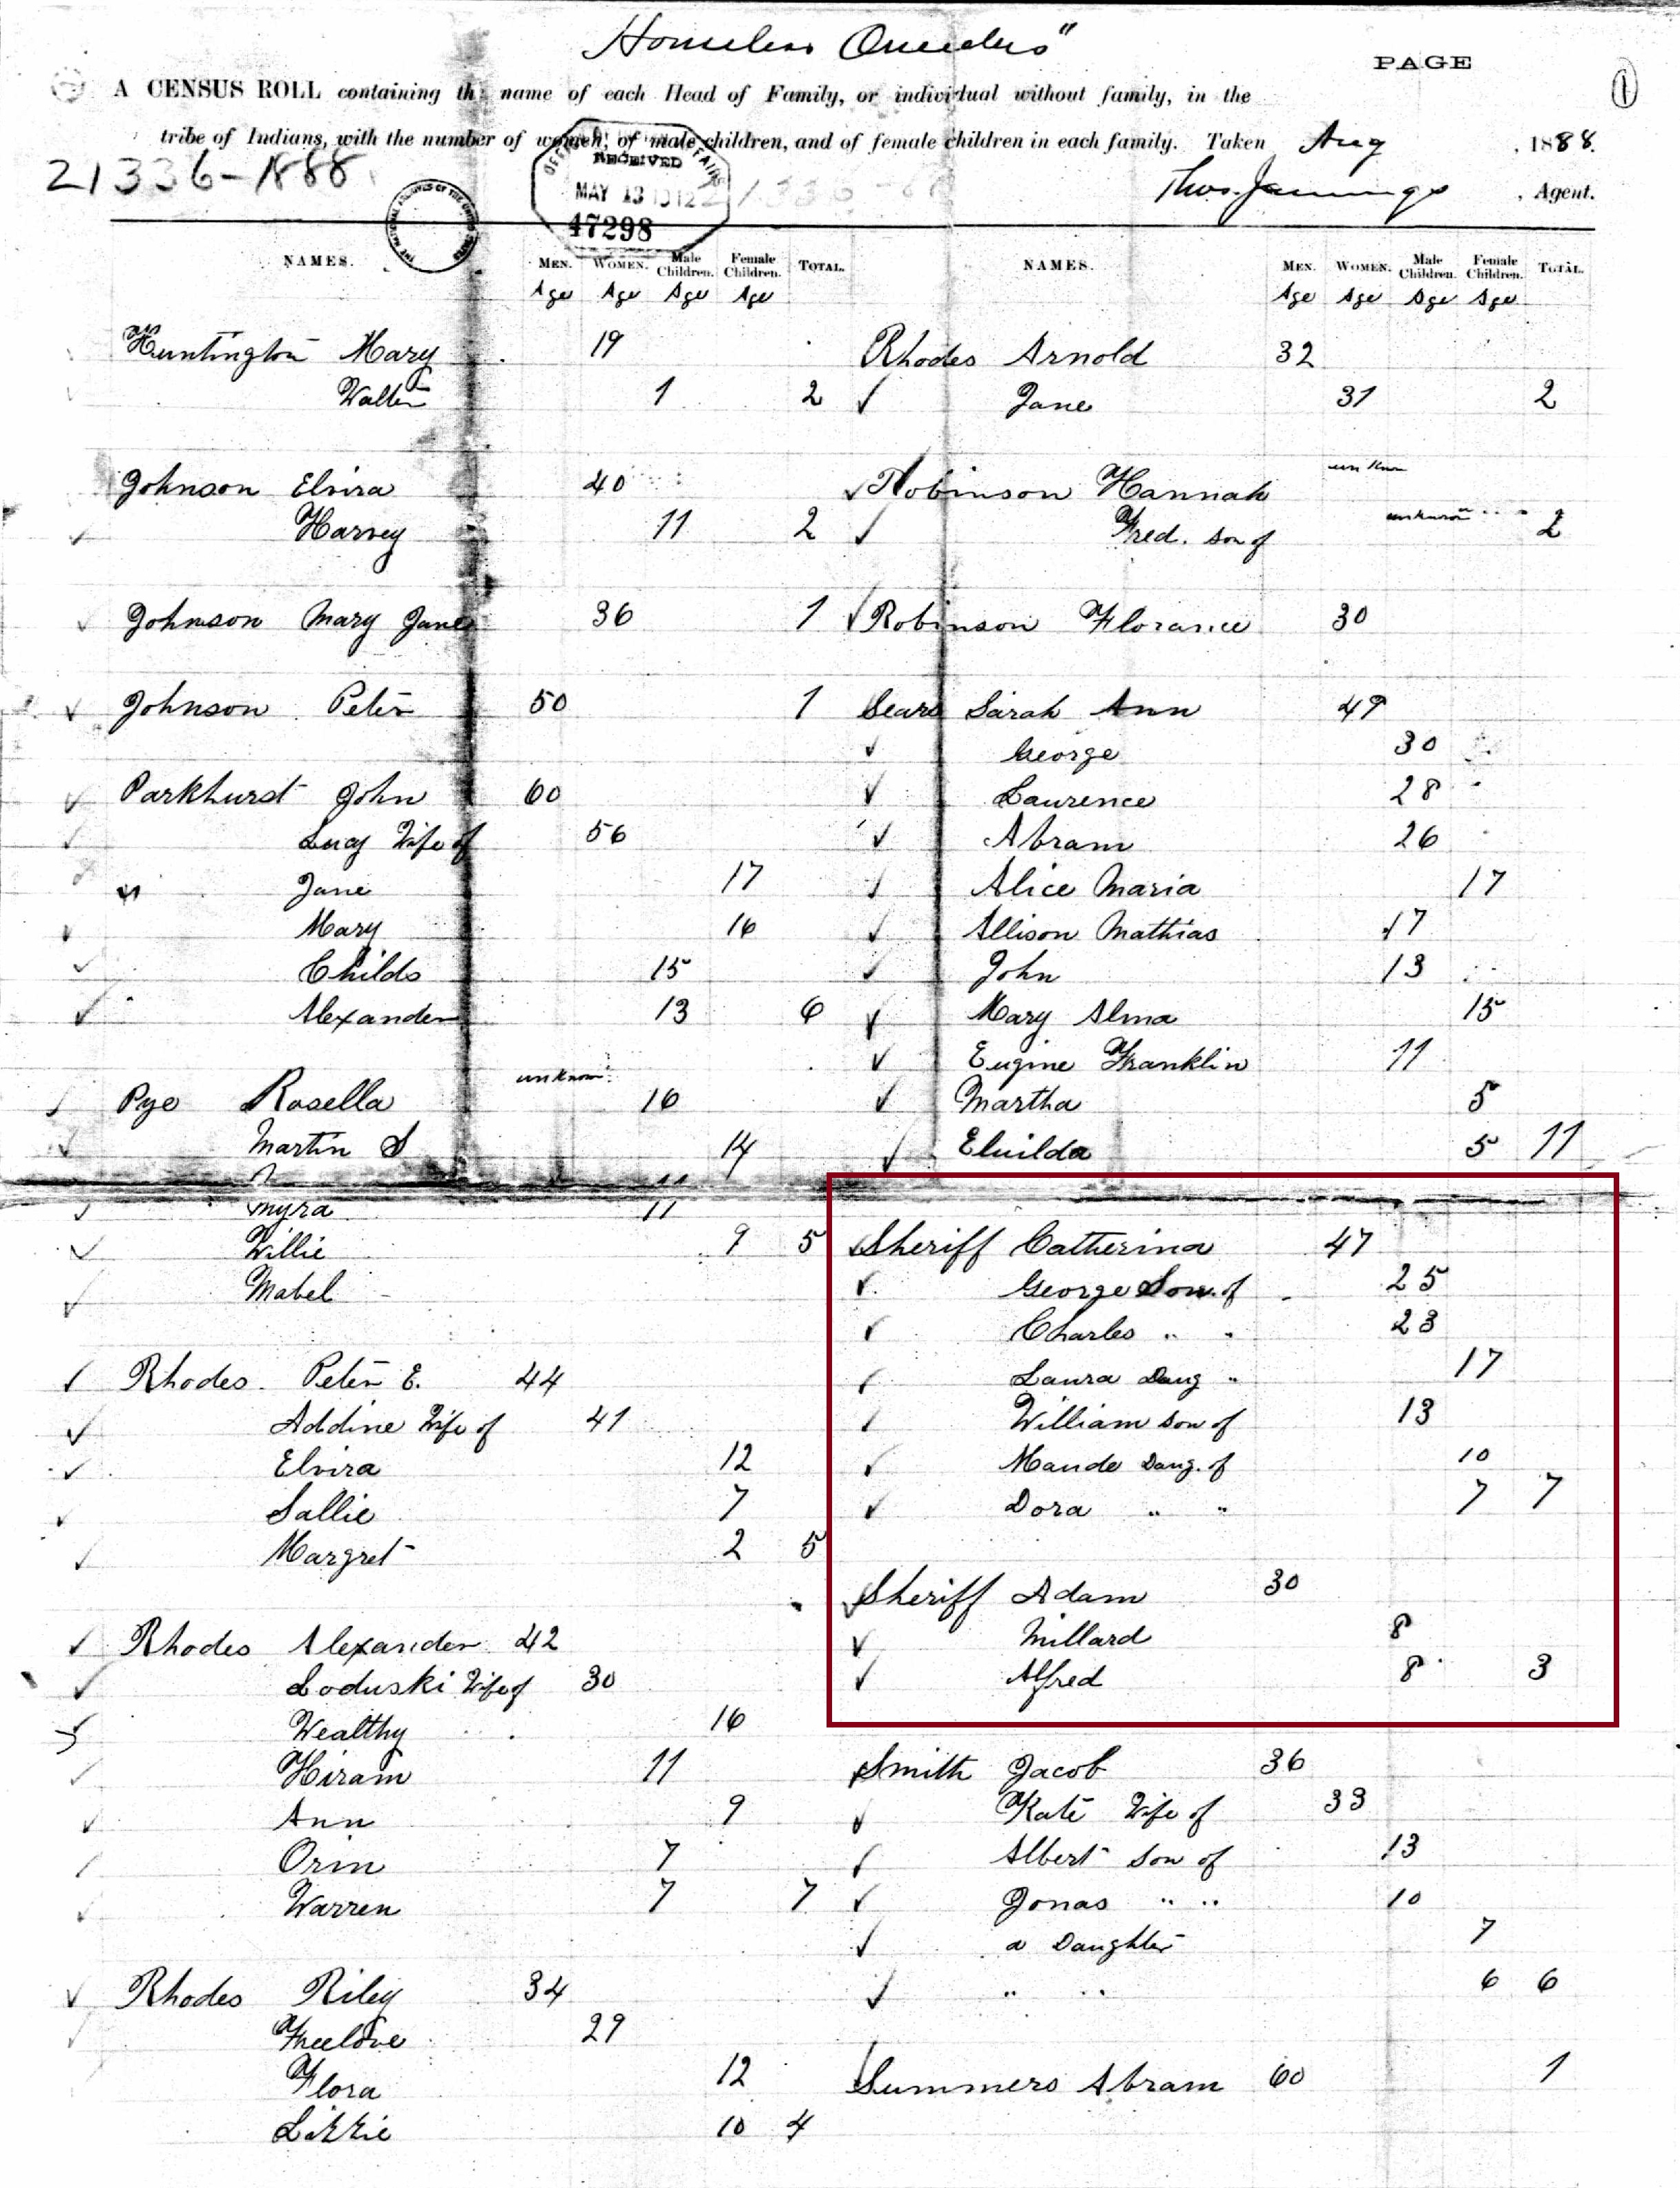 "Homeless Oneidas"
PAGE
1
A CENSUS ROLL containing the name of each Head of Family, or individual without family, in the
tribe of Indians, with the number of women, of male children, and of female children in each family. Taken Aug , 1888.
21336-1888
RECEIVED
MAY 13 1912
47298
Thos. Jennings , Agent.
NAMES. MEN. WOMEN. Male Children. Female Children. TOTAL.
Age Age Age Age
Huntington Mary 19
Walter 1 2
Johnson Elvira 40
Harvey 11 2
Johnson Mary Jane 36 1
Johnson Peter 50 1
Parkhurst John 60
Lucy Wife of 56
Jane 17
Mary 16
Childs 15
Alexander 13 6
Pye Rosella unknown 16
Martin S 14
Myra 11
Willie 9 5
Mabel
Rhodes Peter E. 44
Addine Wife of 41
Elvira 12
Sallie 7
Margret 2 5
Rhodes Alexander 42
Loduski Wife of 30
Wealthy 16
Hiram 11
Ann 9
Orin 7
Warren 7 7
Rhodes Riley 34
Freelove 29
Flora 12
Lizzie 10 4
NAMES. MEN. WOMEN. Male Children. Female Children. TOTAL.
Age Age Age Age
Rhodes Arnold 32
Jane 31 2
Robinson Hannah unknown
Fred. son of unknown 2
Robinson Florance 30
Sears Sarah Ann 49
George 30
Laurence 28
Abram 26
Alice Maria 17
Allison Mathias 17
John 13
Mary Alma 15
Eugine Franklin 11
Martha 5
Eluilda 5 11
Sheriff Catherina 47
George Son of 25
Charles " " 23
Laura Daug " 17
William son of 13
Maude Daug. of 10
Dora " " 7 7
Sheriff Adam 30
Millard 8
Alfred 8 3
Smith Jacob 36
Kate Wife of 33
Albert son of 13
Jonas " " 10
a Daughter 7
" " 6 6
Summers Abram 60 1